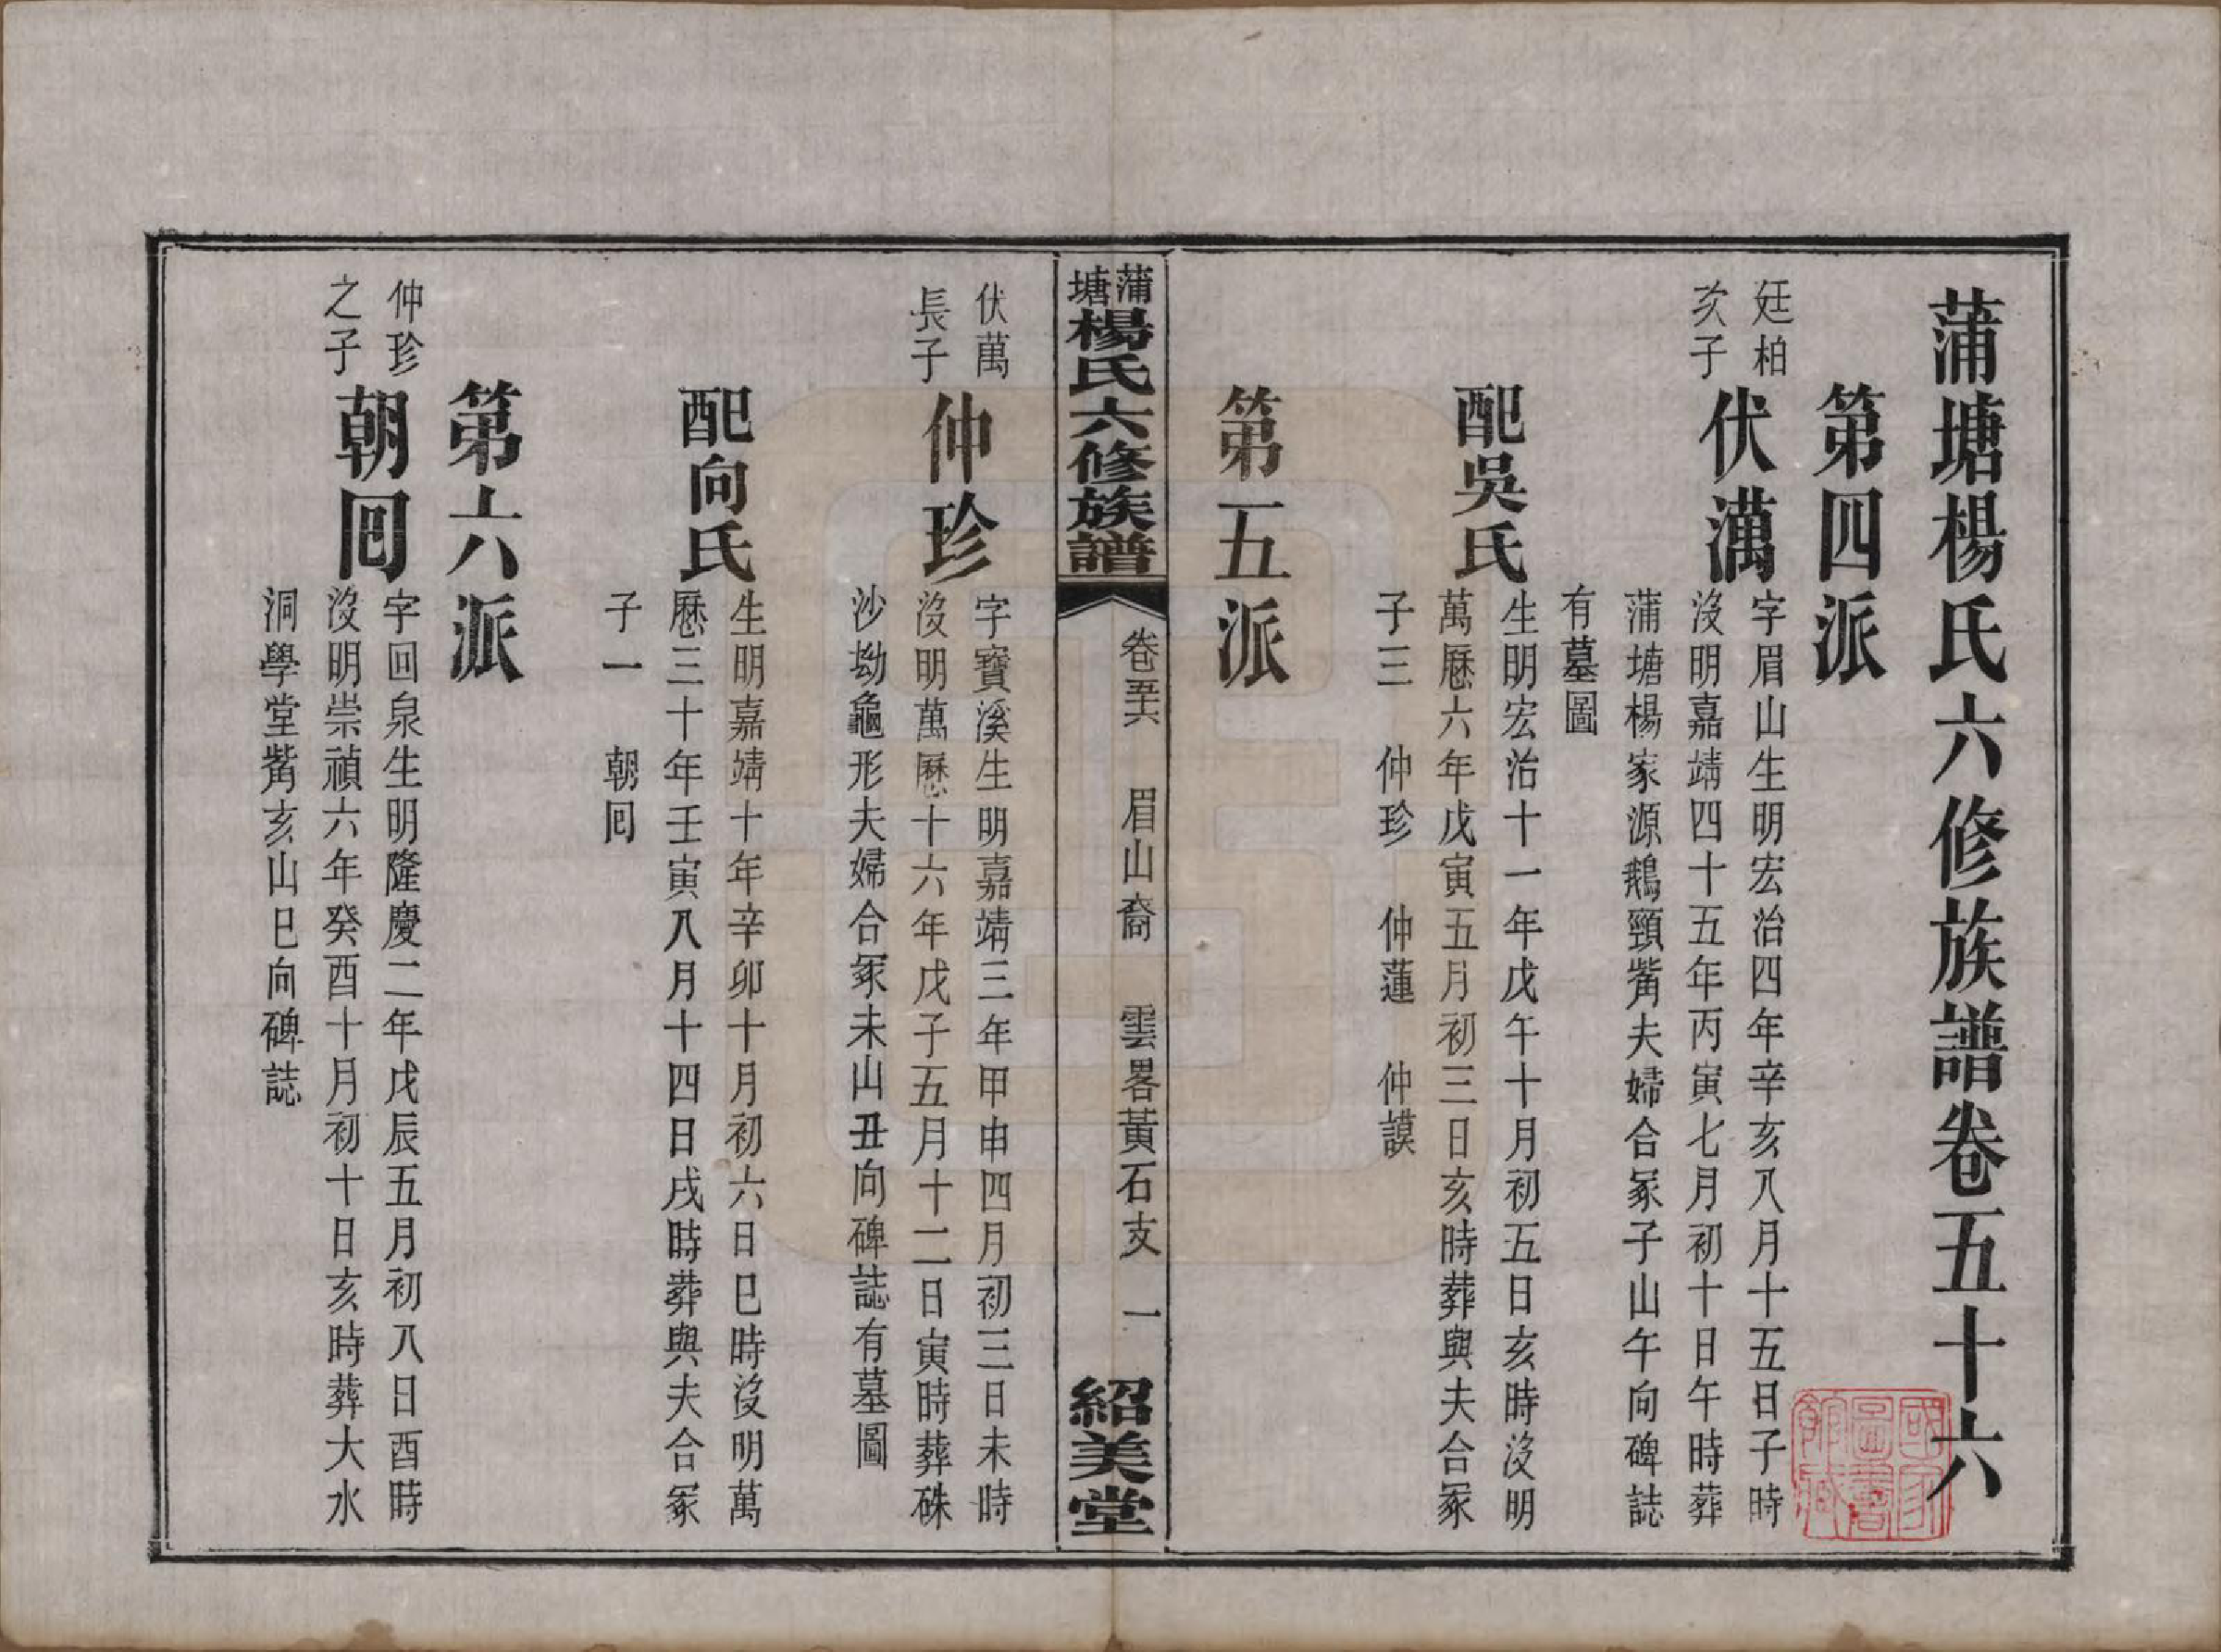 蒲塘楊氏六修族譜卷五十六
第四派
廷柏
次子
伏萬
字眉山生明宏治四年辛亥八月十五日子時
沒明嘉靖四十五年丙寅七月初十日午時葬
蒲塘楊家源鵝頸觜夫婦合冢子山午向碑誌
有墓圖
配吳氏
生明宏治十一年戊午十月初五日亥時沒明
萬曆六年戊寅五月初三日亥時葬與夫合冢
子三 仲珍 仲蓮 仲謨
第五派
蒲塘楊氏六修族譜
卷五六 眉山裔 雲畧黃石支 一
紹美堂
伏萬
長子
仲珍
字寶溪生明嘉靖三年甲申四月初三日未時
沒明萬曆十六年戊子五月十二日寅時葬硃
沙坳龜形夫婦合冢未山丑向碑誌有墓圖
配向氏
生明嘉靖十年辛卯十月初六日巳時沒明萬
曆三十年壬寅八月十四日戌時葬與夫合冢
子一 朝囘
第六派
仲珍
之子
朝囘
字回泉生明隆慶二年戊辰五月初八日酉時
沒明崇禎六年癸酉十月初十日亥時葬大水
洞學堂觜亥山巳向碑誌
國家圖書館藏